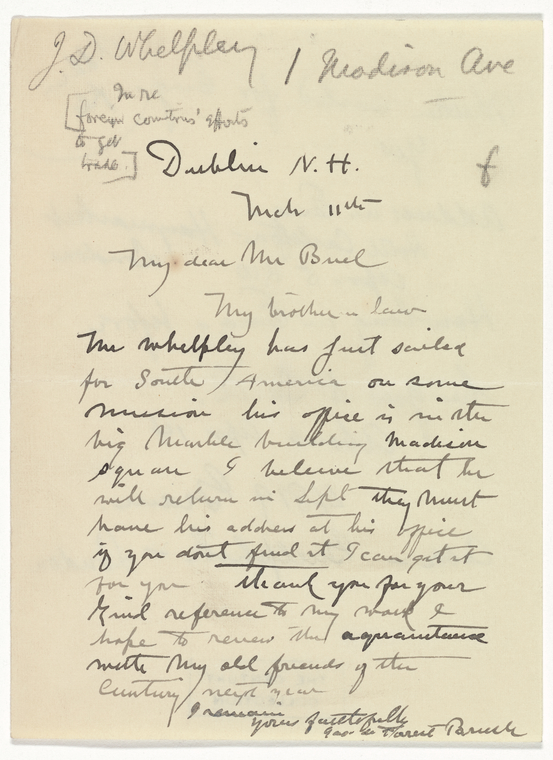 J. D. Whelpley / 1 Madison Ave
In re
[foreign countries' efforts
to get
trade.]
Dublin N. H.
f
Mch 11th
My dear Mr Buel
My brother in law
Mr Whelpley has just sailed
for South America on some
mission his office is in the
big Marble building Madison
square I beleive that he
will return in Sept they must
have his address at his office
if you dont find it I can get it
for you thank you for your
kind reference to my work I
hope to renew the aquaintance
with my old friends of the
Century next year
I remain
yours faithfully
George de Forest Brush